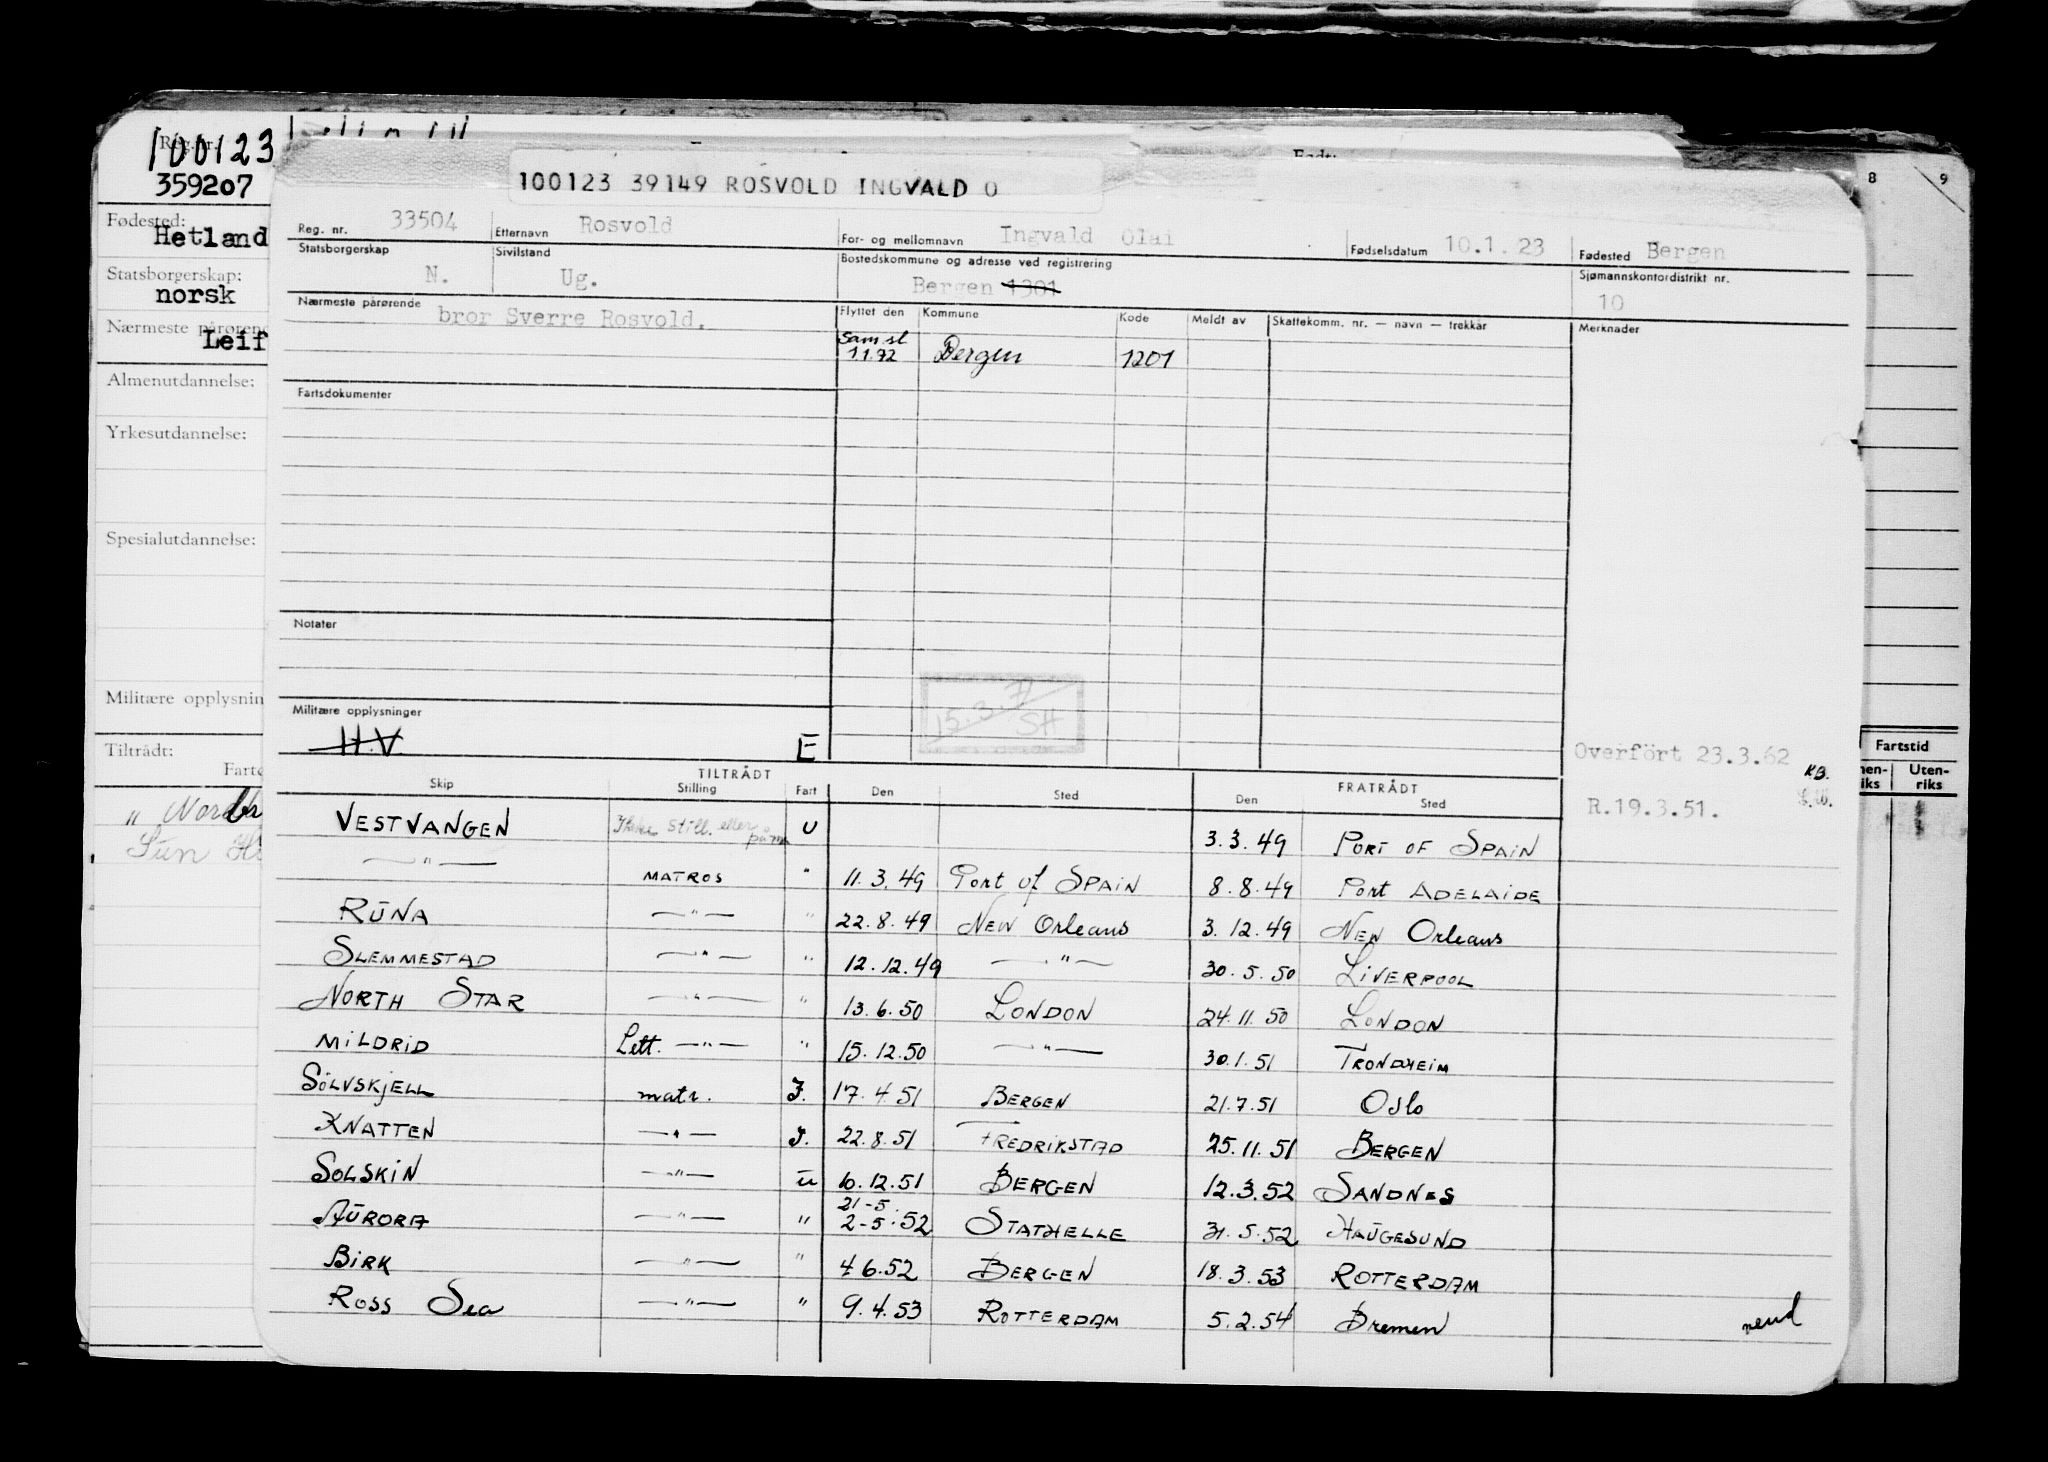 Reg. nr.
100123
359207
Fødested:
Hetland
Statsborgerskap:
norsk
Nærmeste pårørend
Leif
Almenutdannelse:
Yrkesutdannelse:
Spesialutdannelse:
Militære opplysnin
Tiltrådt:
Farte
Født:
100123 39149 ROSVOLD INGVALD O
Reg. nr. 33504 Etternavn Rosvold For- og mellomnavn Ingvald Olai Fødselsdatum 10.1.23 Fødested Bergen
Statsborgerskap N. Sivilstand Ug. Bostedskommune og adresse ved registrering Bergen 1301 Sjømannskontordistrikt nr. 10
Nærmeste pårørende bror Sverre Rosvold.
Flyttet den Kommune Kode Meldt av Skattekomm. nr. — navn — trekkår Merknader
Sam.sl
1.1.72 Bergen 1201
Fartsdokumenter
Notater
Militære opplysninger
H.V. E
15.3.7
SH
Overført 23.3.62 KB.
R.19.3.51.
TILTRÅDT FRATRÅDT
Skip Stilling Fart Den Sted Den Sted
VESTVANGEN still. eller U 3.3.49 PORT OF SPAIN
—"— MATROS " 11.3.49 Port of SPAIN 8.8.49 Port ADELAIDE
RŪNA —"— " 22.8.49 NEW Orleans 3.12.49 NEW Orleans
SLEMMESTAD —"— " 12.12.49 —"— 30.5.50 LIVERPOOL
NORTH STAR —"— " 13.6.50 LONDON 24.11.50 LONDON
MILDRID Lett. —"— " 15.12.50 —"— 30.1.51 TRONDHEIM
SÖLVSKJELL matr. I. 17.4.51 BERGEN 21.7.51 Oslo
KNATTEN —"— I. 22.8.51 FREDRIKSTAD 25.11.51 BERGEN
SOLSKIN —"— ū 6.12.51 BERGEN 12.3.52 SANDNES
21-5.
AŪRORA —"— " 2-5.52 STATHELLE 31.5.52 HAŪGESUND
BIRK —"— " 4.6.52 BERGEN 18.3.53 ROTTERDAM
ROSS Sea —"— " 9.4.53 ROTTERDAM 5.2.54 Bremen
vend
8 9
Fartstid
nen-
riks
Uten-
riks